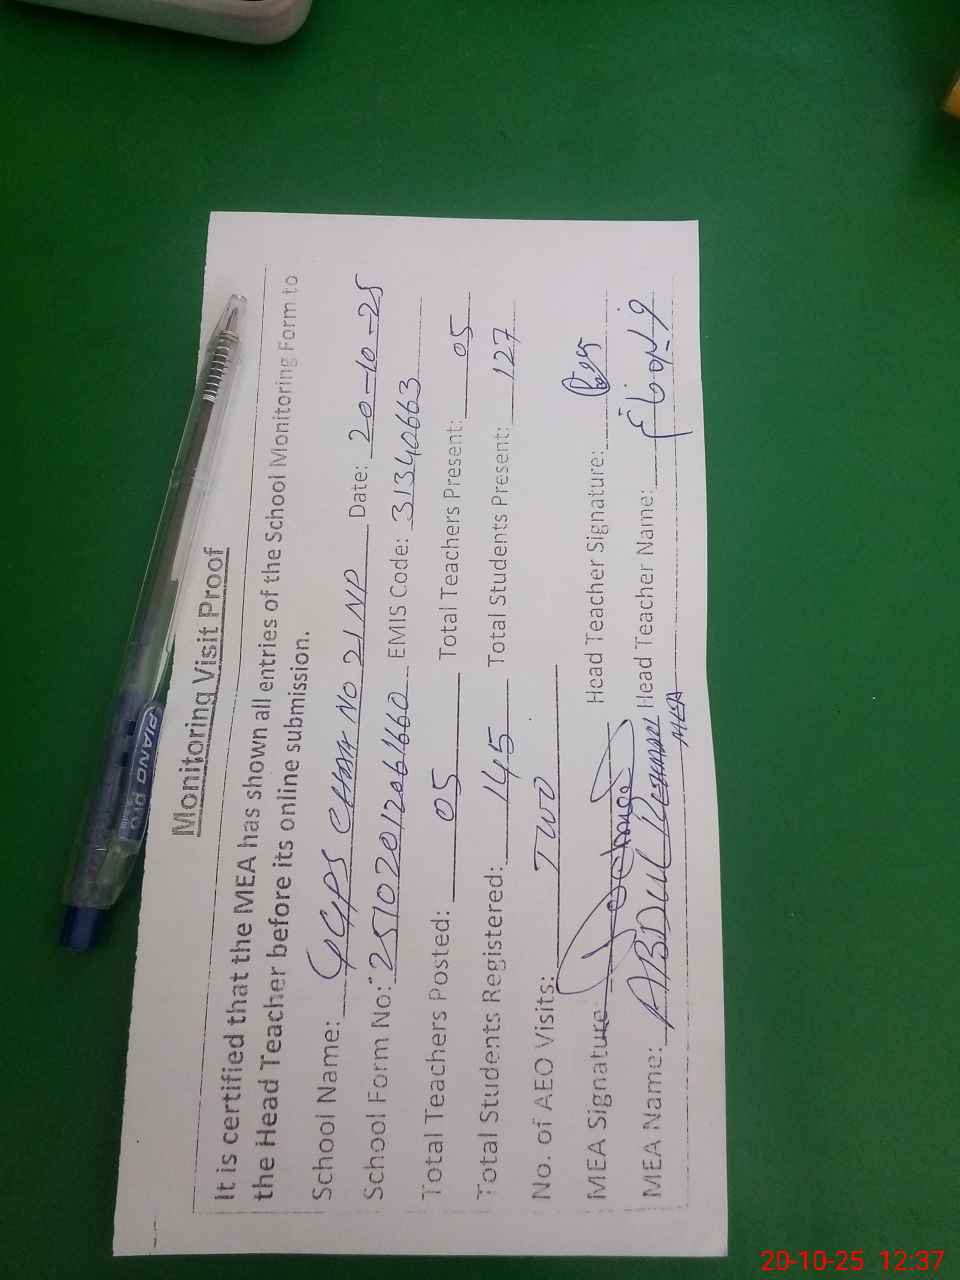 Monitoring Visit Proof
It is certified that the MEA has shown all entries of the School Monitoring Form to
the Head Teacher before its online submission.
School Name: GGPS CHAK NO 21 NP Date: 20-10-25
School Form No: 25102012061660 EMIS Code: 31340663
Total Teachers Posted: 05 Total Teachers Present: 05
Total Students Registered: 145 Total Students Present: 127
No. of AEO Visits: TWO
MEA Signature: Head Teacher Signature:
MEA Name: ABDUL Head Teacher Name:
MEA
PIANO
20-10-25 12:37